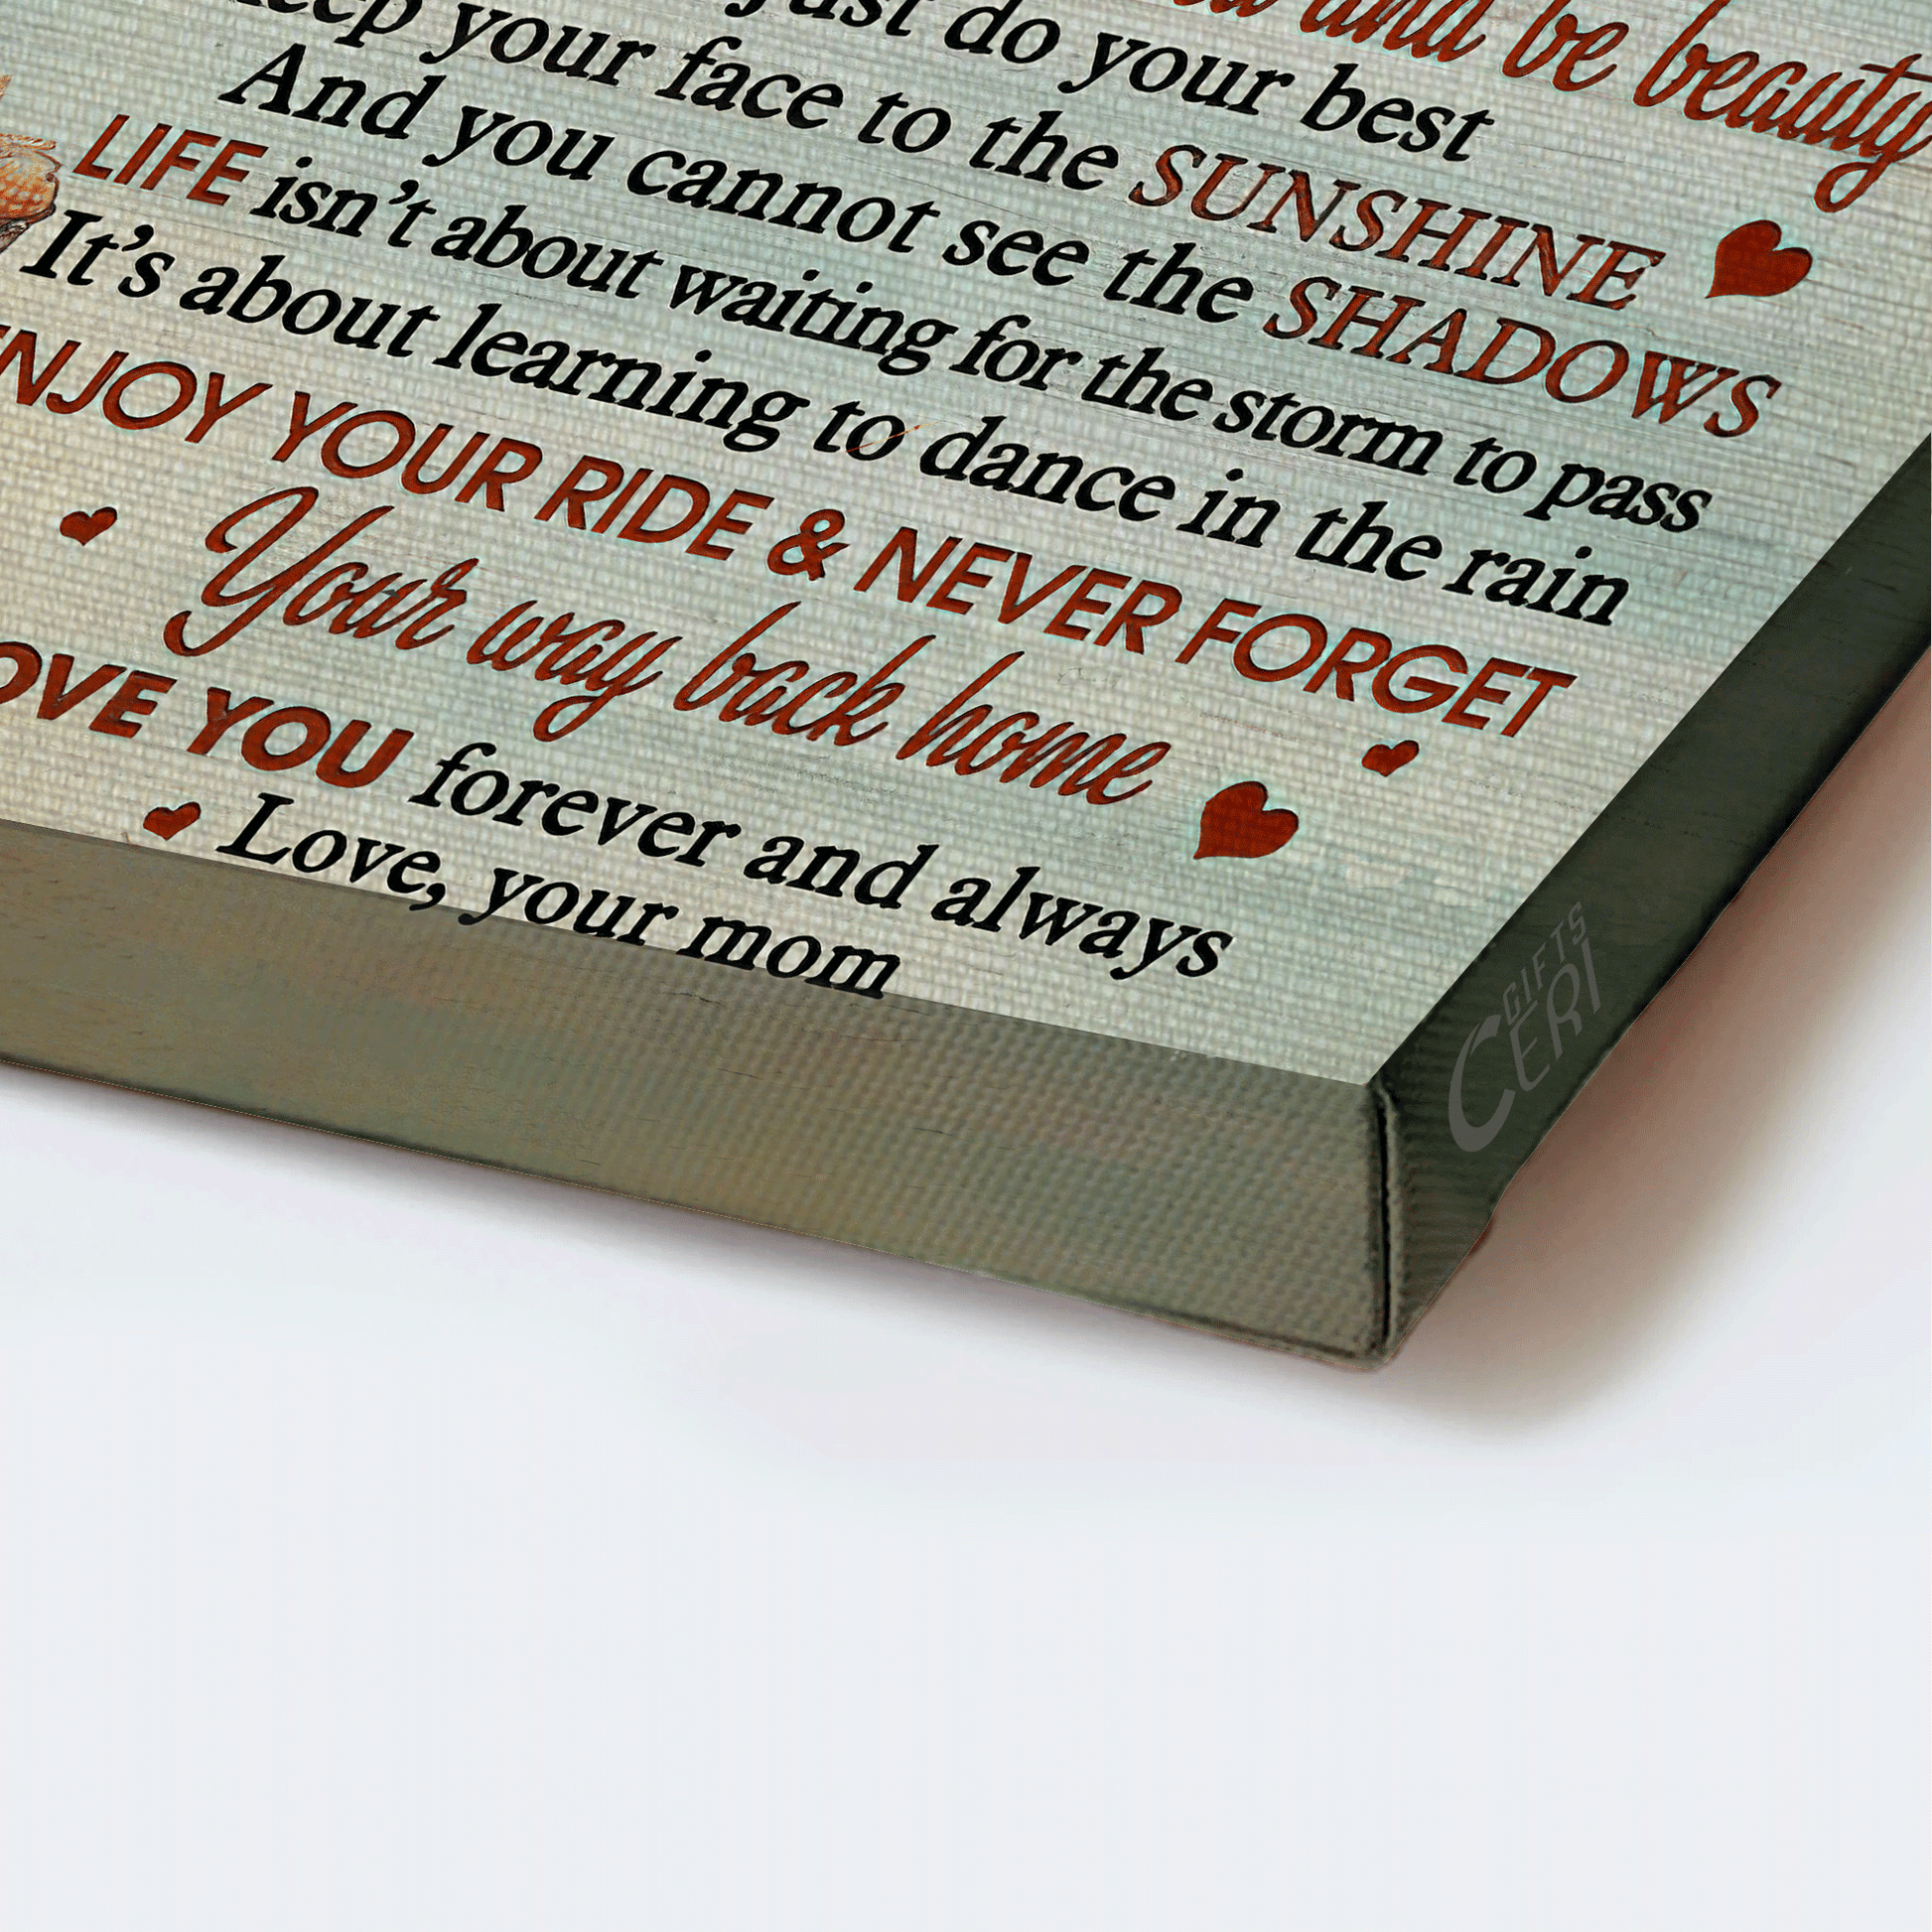 and be beauty
just do your best
your face to the SUNSHINE
And you cannot see the SHADOWS
LIFE isn't about waiting for the storm to pass
It's about learning to dance in the rain
ENJOY YOUR RIDE & NEVER FORGET
Your way back home
LOVE YOU forever and always
Love, your mom
GIFTS
CERI